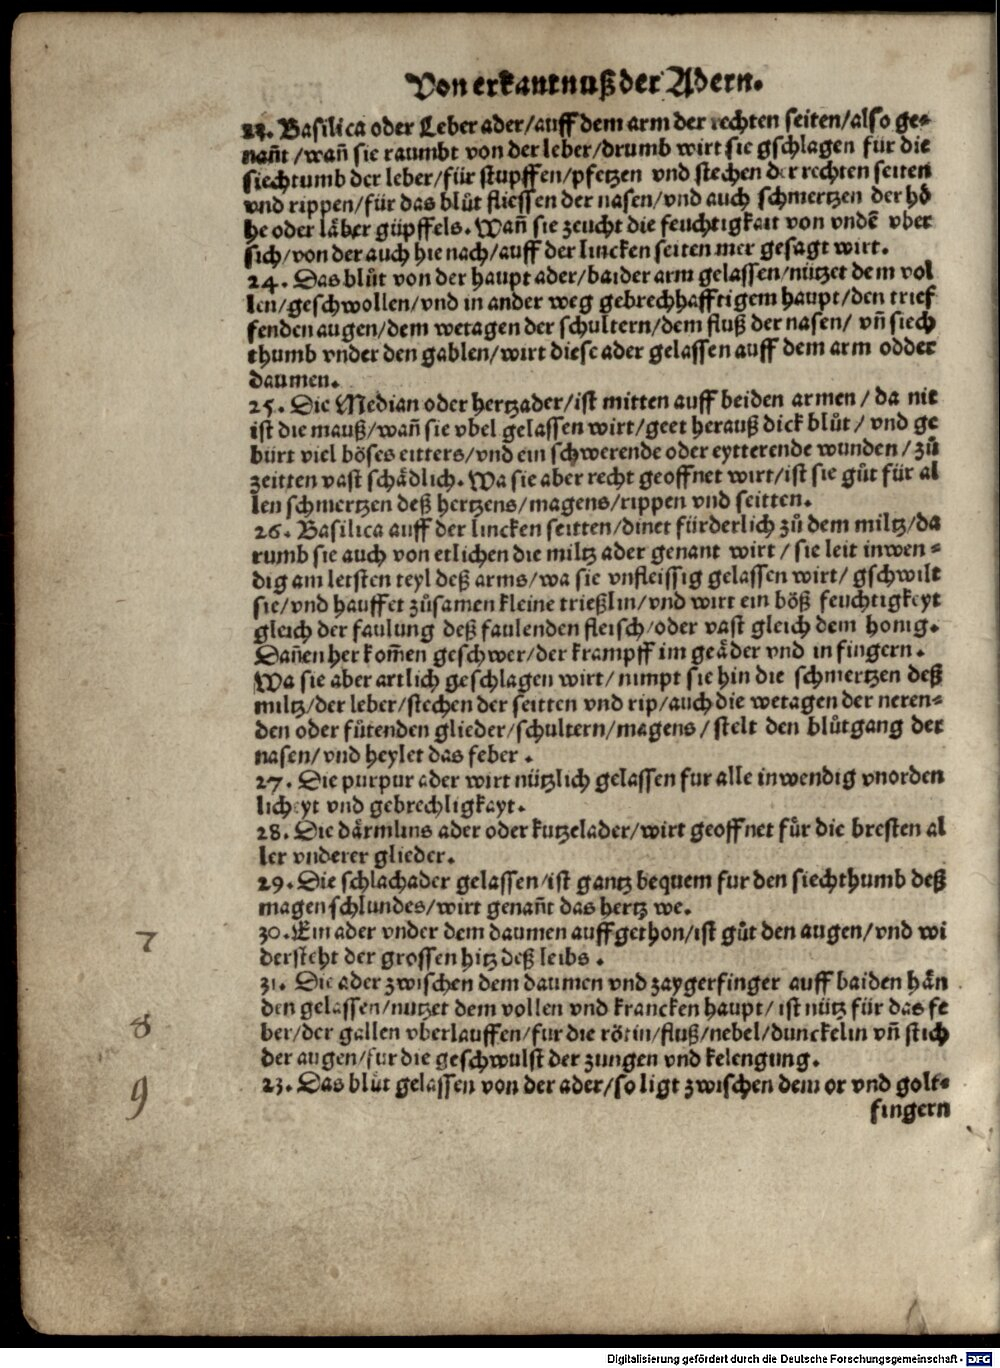 Von erkantnuß der Adern.
23. Basilica oder Leber ader/auff dem arm der rechten seiten/also ge⸗
nañt/wañ sie raumbt von der leber/drumb wirt sie gschlagen für die
siechtumb der leber/für stupffen/pfetzen vnd stechen der rechten seiten
vnd rippen/für das blůt fliessen der nasen/vnd auch schmertzen der hö
he oder läber güpffels. Wañ sie zeucht die feuchtigkait von vndẽ vber
sich/von der auch hie nach/auff der lincken seiten mer gesagt wirt.
24. Das blůt von der haupt ader/baider arm gelassen/nützet dem vol
len/geschwollen/vnd in ander weg gebrechhafftigem haupt/den trief
fenden augen/dem wetagen der schultern/dem fluß der nasen/ vñ siech
thumb vnder den gablen/wirt diese ader gelassen auff dem arm odder
daumen.
25. Die Median oder hertzader/ist mitten auff beiden armen/ da nit
ist die mauß/wañ sie vbel gelassen wirt/geet herauß dick blůt/ vnd ge
bürt viel böses eitters/vnd ein schwerende oder eytterende wunden/zů
zeitten vast schädlich. Wa sie aber recht geoffnet wirt/ist sie gůt für al
len schmertzen deß hertzens/magens/rippen vnd seitten.
26. Basilica auff der lincken seitten/dinet fürderlich zů dem miltz/da
rumb sie auch von etlichen die miltz ader genant wirt/ sie leit inwen⸗
dig am letsten teyl deß arms/wa sie vnfleissig gelassen wirt/ gschwilt
sie/vnd hauffet zůsamen kleine trießlin/vnd wirt ein böß feuchtigkeyt
gleich der faulung deß faulenden fleisch/oder vast gleich dem honig.
Dañen her kom̃en geschwer/der krampff im geäder vnd in fingern.
Wa sie aber artlich geschlagen wirt/ nimpt sie hin die schmertzen deß
miltz/der leber/stechen der seitten vnd rip/auch die wetagen der neren⸗
den oder fůtenden glieder/schultern/magens/ stelt den blůtgang der
nasen/vnd heylet das feber.
27. Die purpur ader wirt nützlich gelassen fur alle inwendig vnorden
licheyt vnd gebrechligkayt.
28. Die därmlins ader oder kutzelader/wirt geoffnet für die bresten al
ler vnderer glieder.
29. Die schlachader gelassen/ist gantz bequem fur den siechthumb deß
magen schlundes/wirt genañt das hertz we.
30. Ein ader vnder dem daumen auffgethon/ist gůt den augen/vnd wi
7
dersteht der grossen hitz deß leibs.
31. Die ader zwischen dem daumen vnd zaygerfinger auff baiden hän
den gelassen/nutzet dem vollen vnd krancken haupt/ ist nütz für das fe
8
ber/der gallen vberlauffen/fur die rötin/fluß/nebel/dunckelin vñ stich
der augen/fur die geschwulst der zungen vnd kelengung.
9
23. Das blůt gelassen von der ader/so ligt zwischen dem or vnd golt⸗
fingern
Digitalisierung gefördert durch die Deutsche Forschungsgemeinschaft - DFG